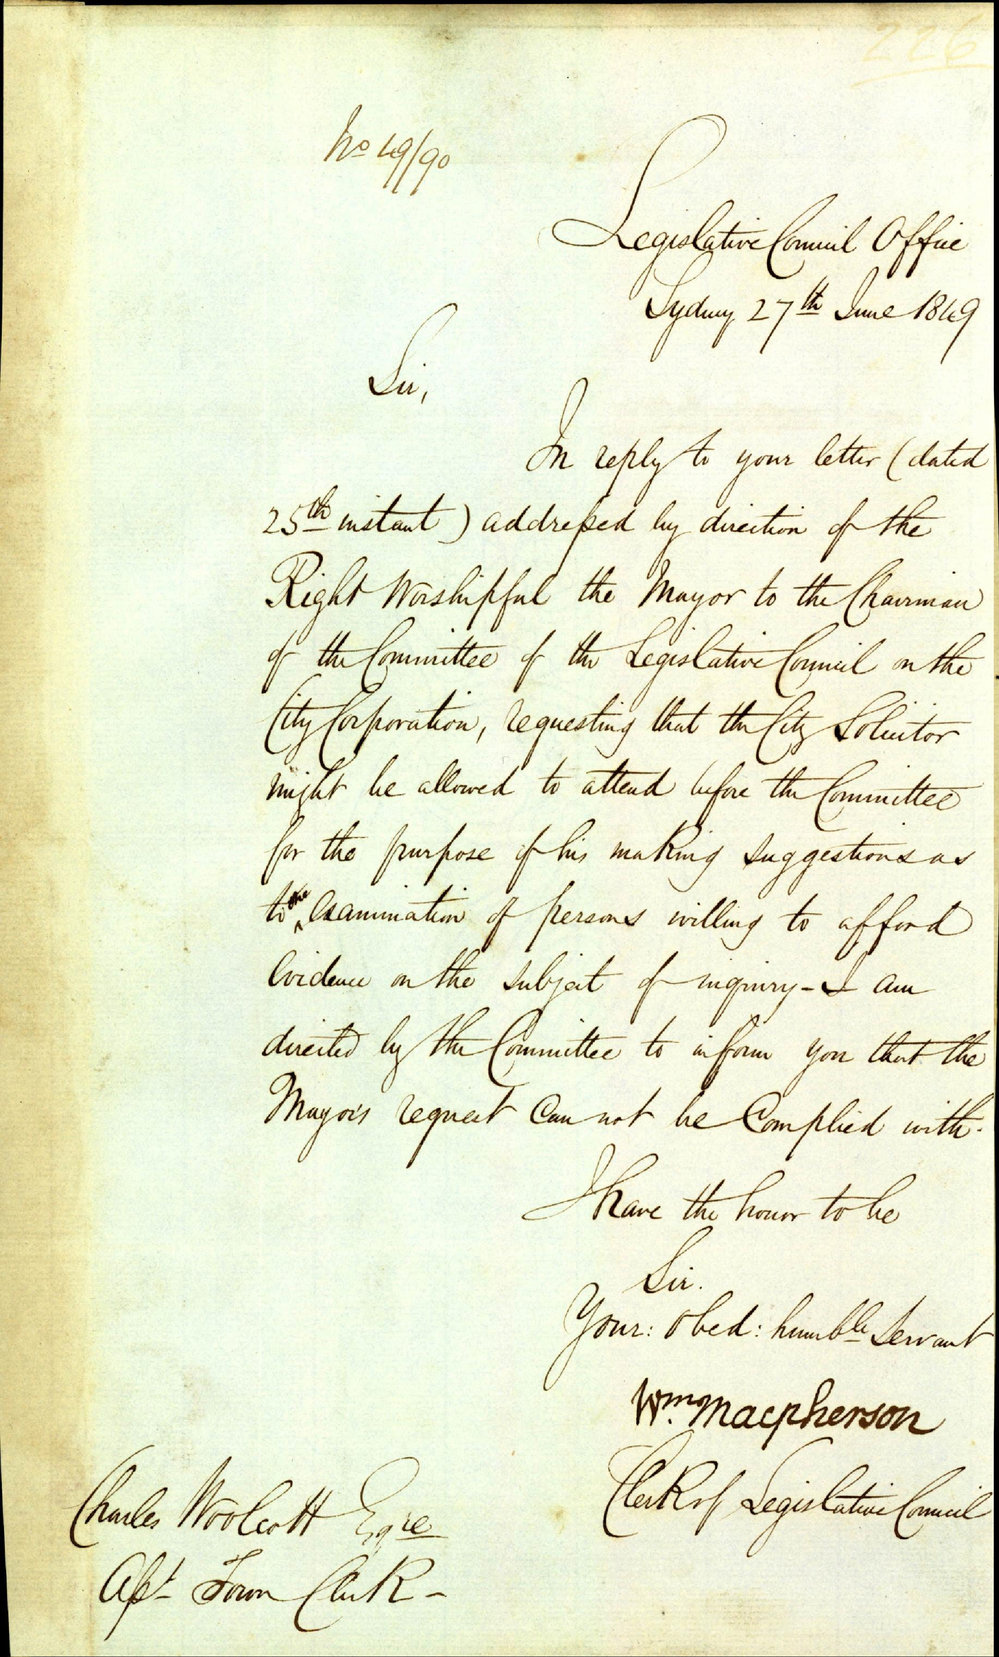 226
No 49/90
Legislative Council Office
Sydney 27th June 1849
Sir,
In reply to your letter (dated
25th instant) addressed by direction of the
Right Worshipful the Mayor to the Chairman
of the Committee of the Legislative Council on the
City Corporation, requesting that the City Solicitor
might be allowed to attend before the Committee
for the purpose of his making suggestions as
to the examination of persons willing to afford
Evidence on the subject of inquiry - I am
directed by the Committee to inform you that the
Mayor's request can not be Complied with.
I have the honor to be
Sir.
Your: obed: humble Servant
Wm. Macpherson
Clerk of Legislative Council
Charles Woolcott Esqre
Asst Town Clerk -